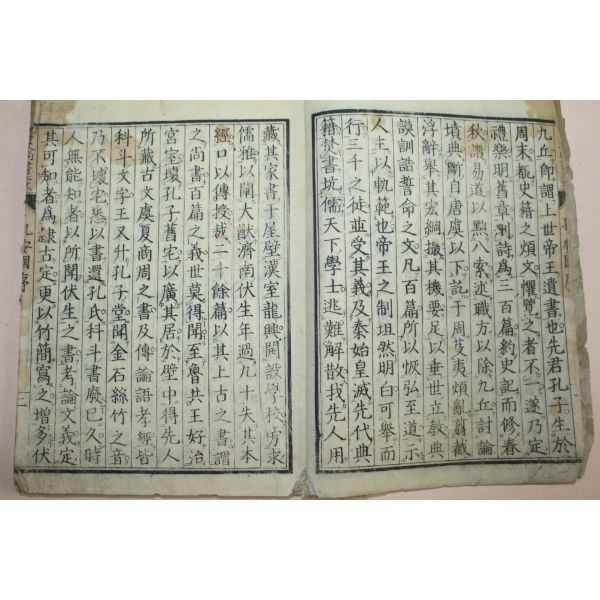 九丘即謂上世帝王遺書也先君孔子生於
周末覩史籍之煩文懼覽之者不一遂乃定
禮樂明舊章刪詩爲三百篇約史記而修春
秋讚易道以黜八索述職方以除九丘討論
墳典斷自唐虞以下訖于周芟夷煩亂翦截
浮辭舉其宏綱撮其機要足以垂世立敎典
謨訓誥誓命之文凡百篇所以恢弘至道示
人主以軌範也帝王之制坦然明白可舉而
行三千之徒並受其義及秦始皇滅先代典
籍焚書坑儒天下學士逃難解散我先人用
藏其家書于屋壁漢室龍興開設學校旁求
儒雅以闡大猷濟南伏生年過九十失其本
經口以傳授裁二十餘篇以其上古之書謂
之尚書百篇之義世莫得聞至魯共王好治
宮室壞孔子舊宅以廣其居於壁中得先人
所藏古文虞夏商周之書及傳論語孝經皆
科斗文字王又升孔子堂聞金石絲竹之音
乃不壞宅悉以書還孔氏科斗書廢已久時
人無能知者以所聞伏生之書考論文義定
其可知者爲隷古定更以竹簡寫之增多伏